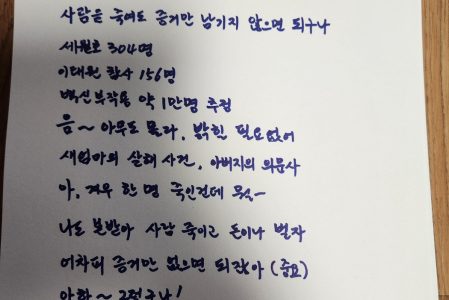 사람을 죽여도 증거만 남기지 않으면 되구나
세월호 304명
이태원 참사 156명
백신 부작용 약 1만명 추정
음~ 아무도 몰라, 밝힐 필요없어
새엄마의 살해 사건, 아버지의 의문사
아, 겨우 한 명 죽인건데 뭐~
나도 본받아 사람 죽이고 돈이나 벌자
어차피 증거만 없으면 되잖아 (중요)
아하~ 그렇구나!